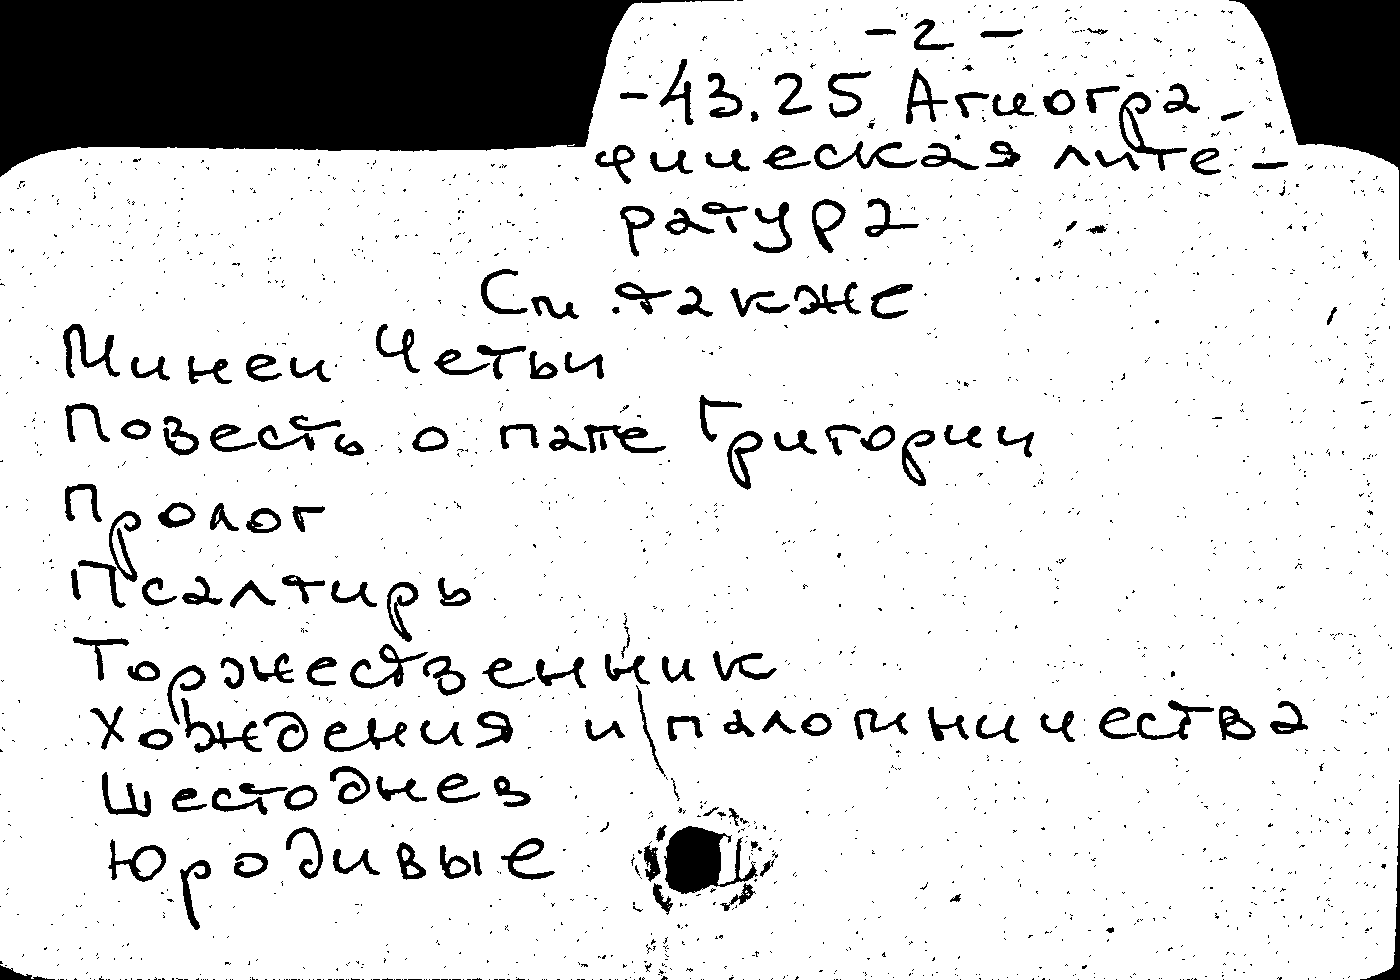 - 2 -
-43.25 Агиогра-
фическая лите-
ратура
См. также
Минеи Четьи
Повесть о папе Григории
Пролог
Псалтирь
Торжественник
Хождения и паломничества
Шестоднев
Юродивые